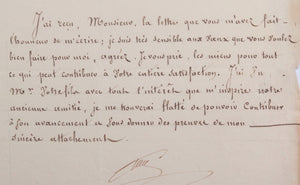 J'ai reçu, Monsieur, la lettre que vous m'avez fait
l'honneur de m'écrire; je suis très sensible aux vœux que vous voulez
bien faire pour moi, agréez, je vous prie, les miens pour tout
ce qui peut contribuer à votre entière satisfaction. J'ai vu
Mr. votre fils avec toute l'intérêt que m'inspire notre
ancienne amitié, je me trouverai flatté de pouvoir contribuer
à son avancement et vous donner des preuves de mon
sincère attachement